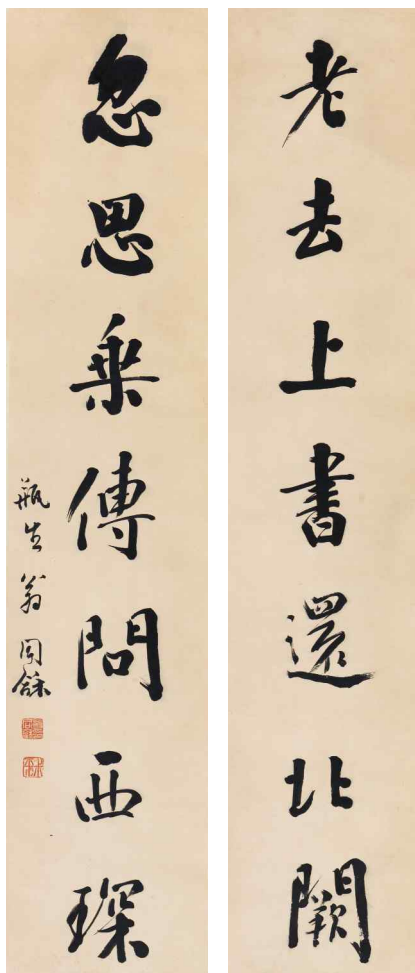 老去上書還北闕
忽思乘傳問西琛
瓶生翁同龢